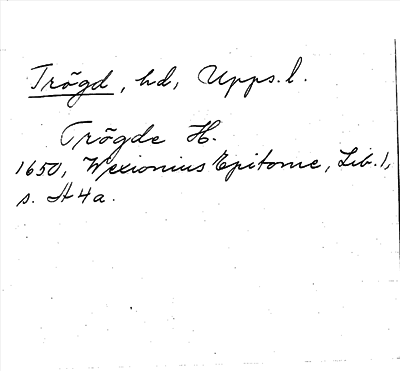 Trögd, hd, Upps. l.
Trögde H.
1650, Wexionius Epitome, Lib. 1,
s. A 4 a.